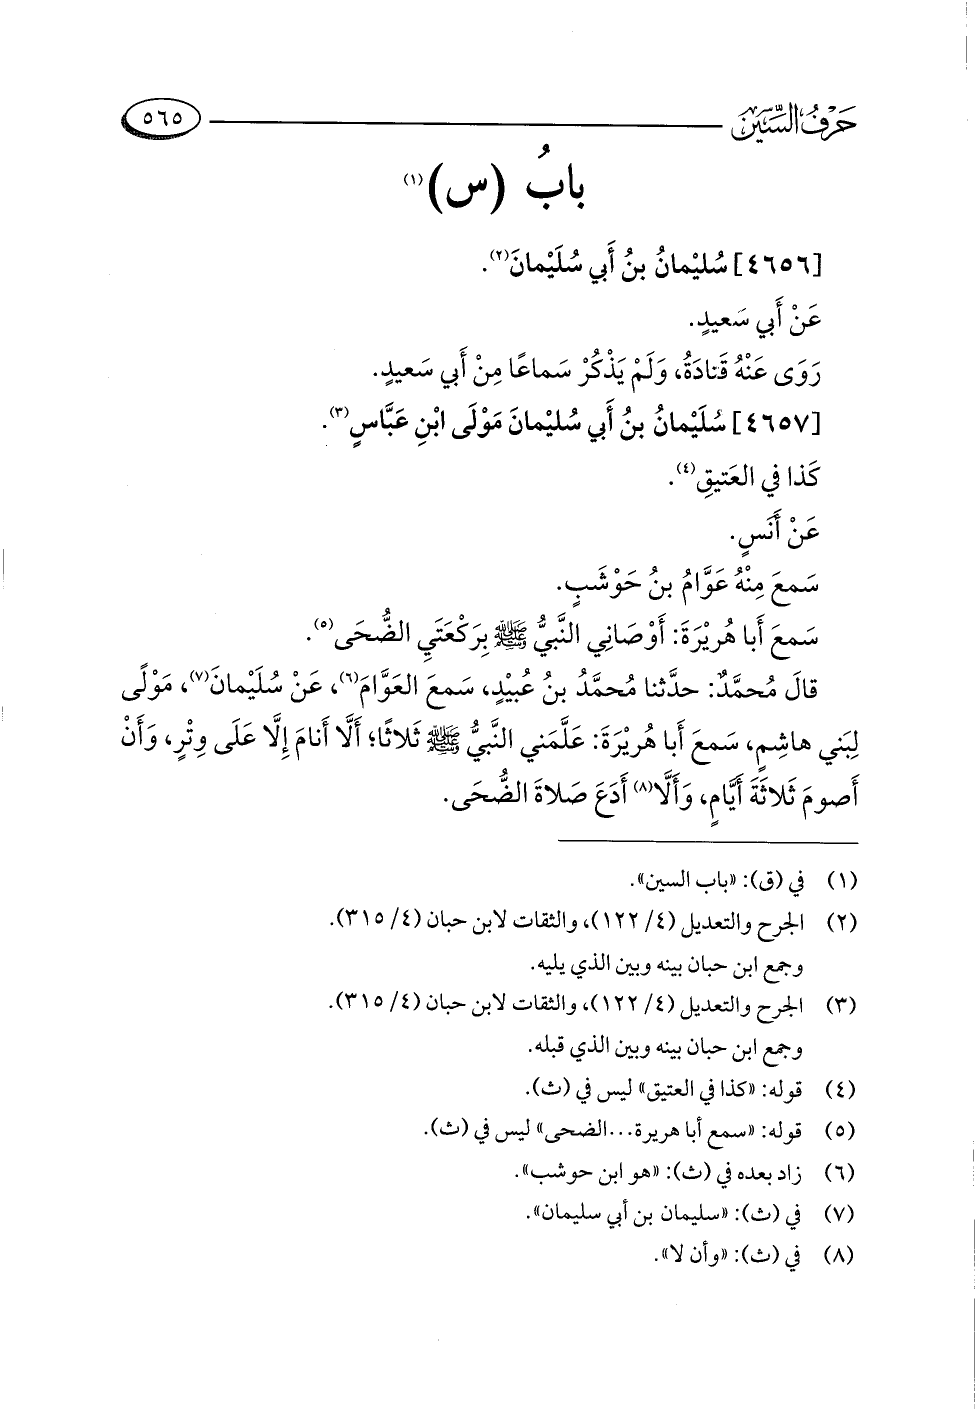 حَرْفُ السِّيْن ٥٦٥
بابُ (س)(١)
[٤٦٥٦] سُليْمانُ بنُ أَبي سُلَيْمانَ(٢).
عَنْ أَبي سَعيدٍ.
رَوَى عَنْهُ قَتادَةُ، وَلَمْ يَذْكُرْ سَماعًا مِنْ أَبي سَعيدٍ.
[٤٦٥٧] سُلَيْمانُ بنُ أَبي سُليْمانَ مَوْلَى ابْنِ عَبَّاسٍ(٣).
كَذا في العَتيقِ(٤).
عَنْ أَنَسٍ.
سَمعَ مِنْهُ عَوَّامُ بنُ حَوْشَبٍ.
سَمعَ أَبا هُرَيْرَةَ: أَوْصَاني النَّبيُّ ﷺ بِرَكْعَتَيِ الضُّحَى(٥).
قالَ مُحمَّدٌ: حدَّثنا مُحمَّدُ بنُ عُبيْدٍ، سَمعَ العَوَّامَ(٦)، عَنْ سُلَيْمانَ(٧)، مَوْلًى
لِبَني هاشِمٍ، سَمعَ أَبا هُريْرَةَ: عَلَّمَني النَّبيُّ ﷺ ثَلاثًا؛ أَلَّا أَنامَ إِلَّا عَلَى وِتْرٍ، وَأَنْ
أَصومَ ثَلاثَةَ أَيَّامٍ، وَأَلَّا(٨) أَدَعَ صَلاةَ الضُّحَى.
(١) في (ق): «باب السين».
(٢) الجرح والتعديل (٤/ ١٢٢)، والثقات لابن حبان (٤/ ٣١٥).
وجمع ابن حبان بينه وبين الذي يليه.
(٣) الجرح والتعديل (٤/ ١٢٢)، والثقات لابن حبان (٤/ ٣١٥).
وجمع ابن حبان بينه وبين الذي قبله.
(٤) قوله: «كذا في العتيق» ليس في (ث).
(٥) قوله: «سمع أبا هريرة...الضحى» ليس في (ث).
(٦) زاد بعده في (ث): «هو ابن حوشب».
(٧) في (ث): «سليمان بن أبي سليمان».
(٨) في (ث): «وأن لا».